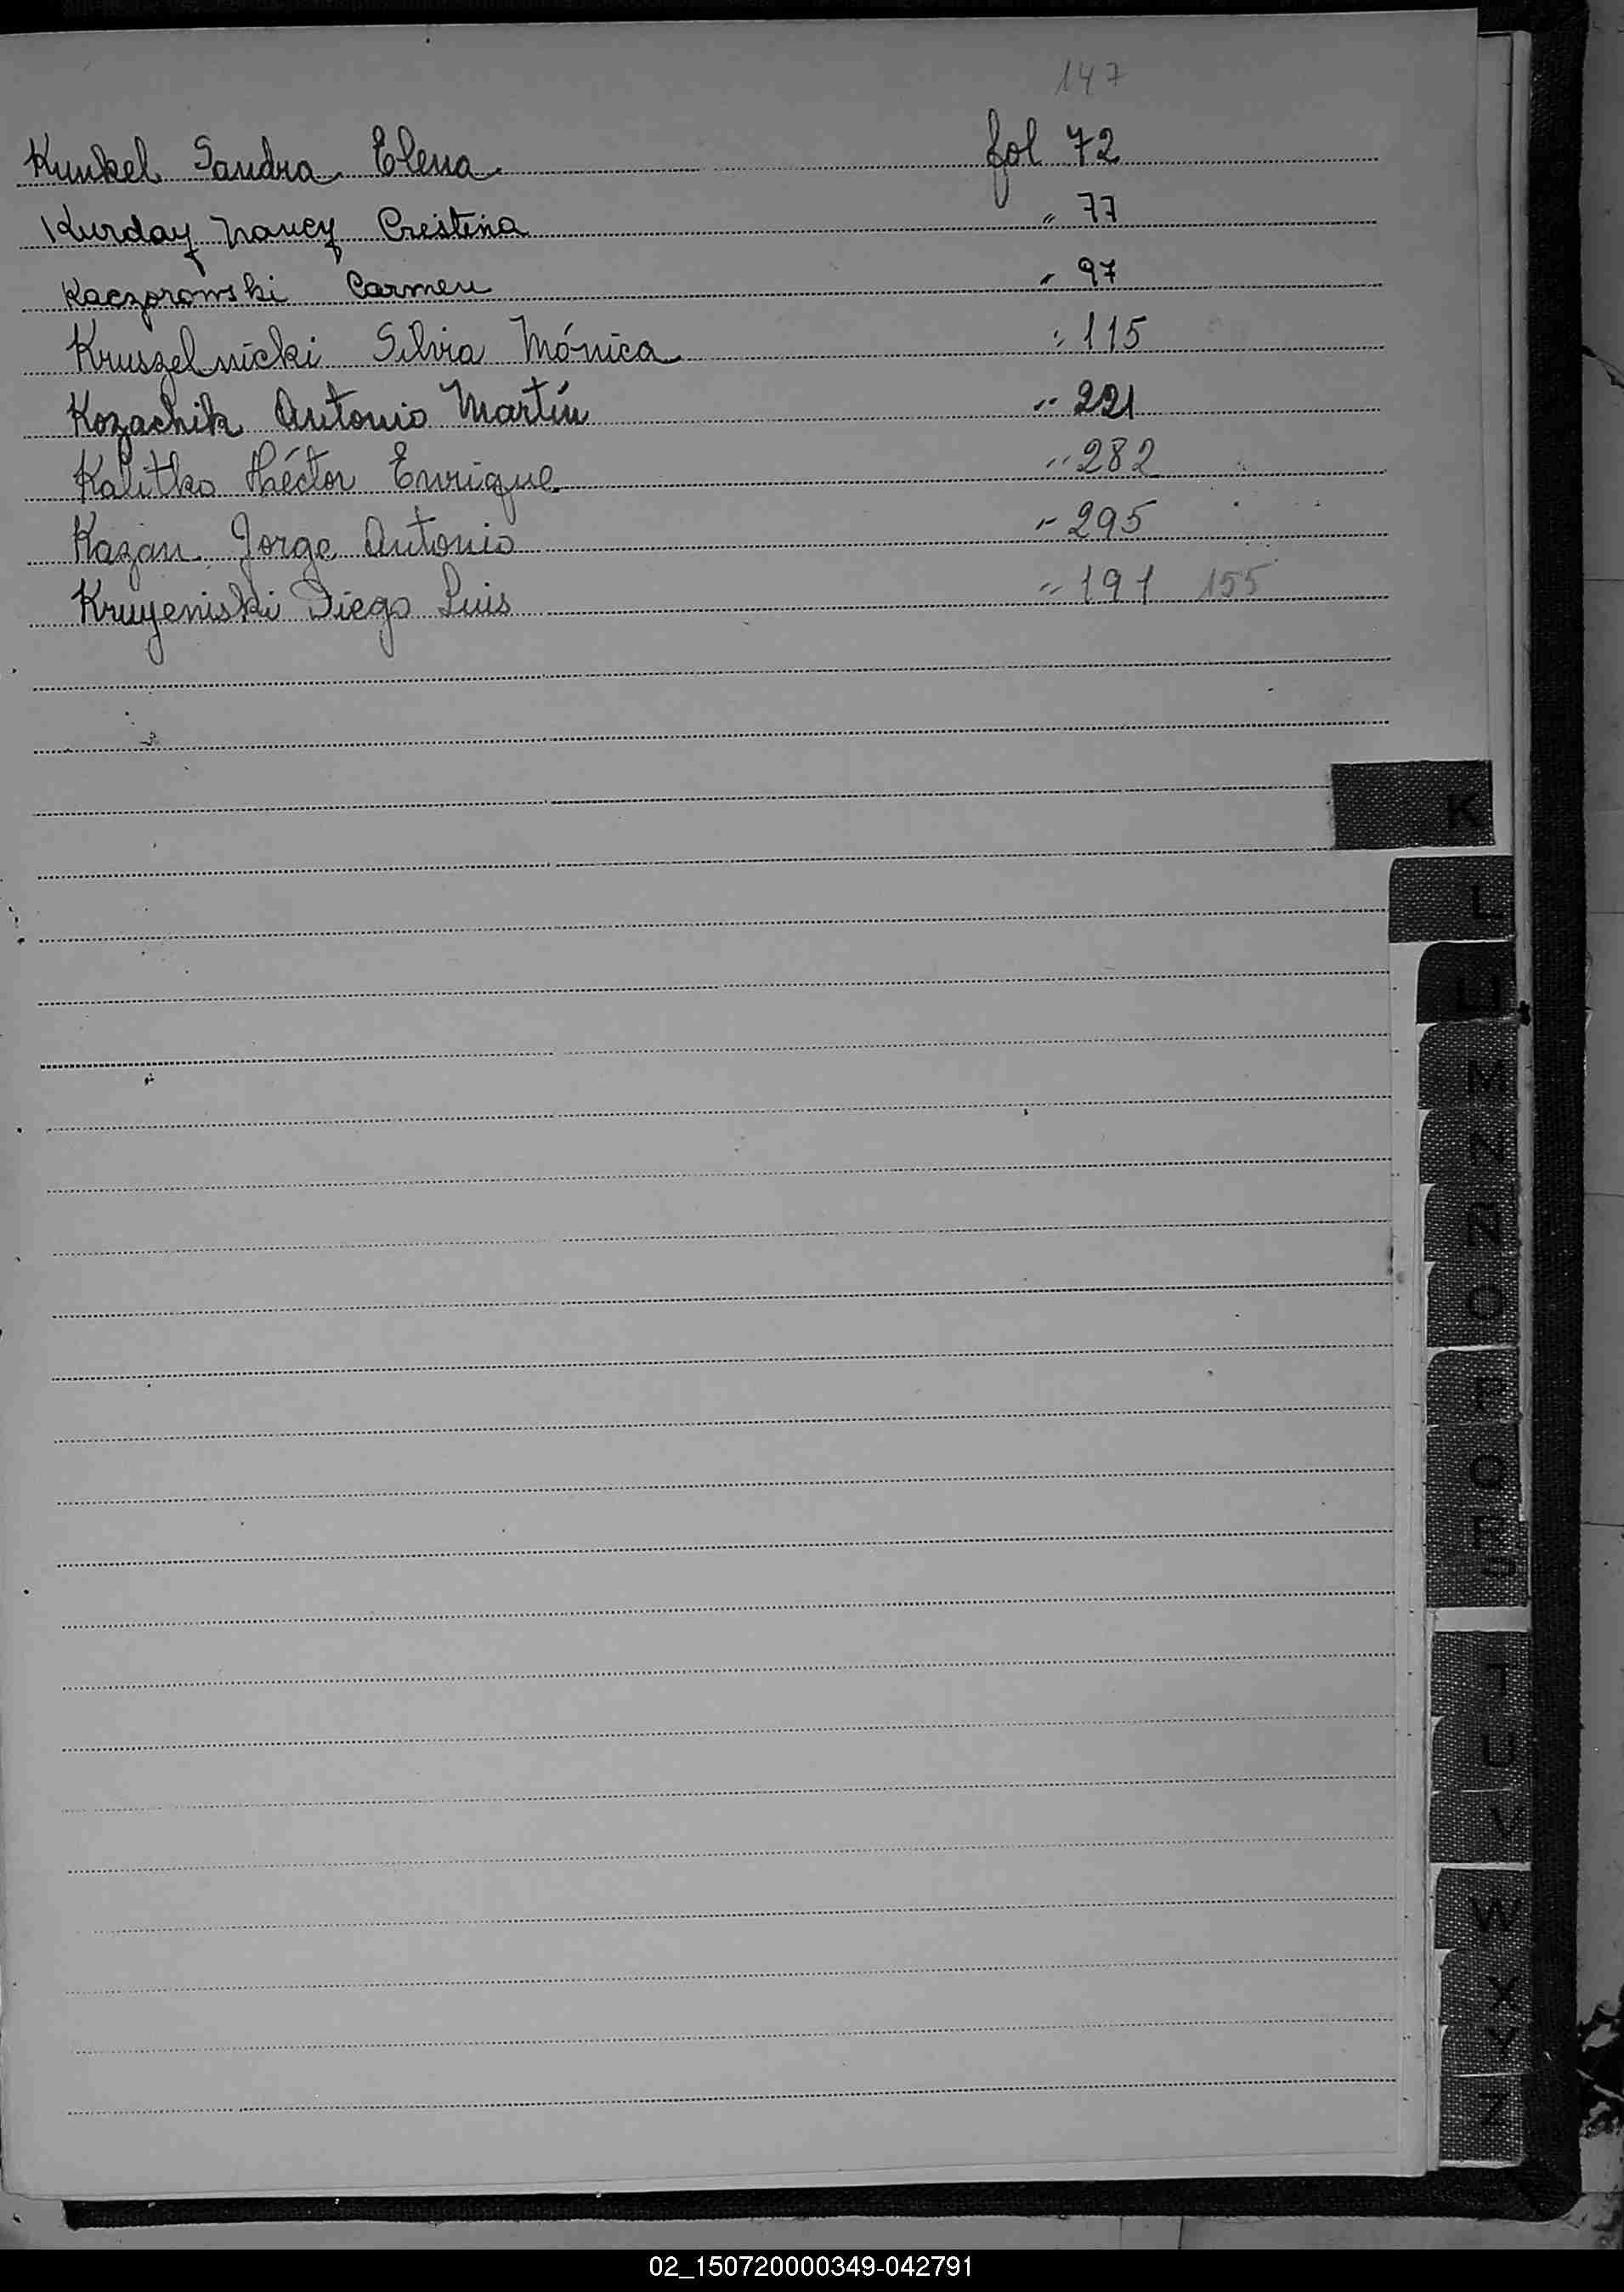 147
Kunkel Sandra Elena fol 72
Kurday Nancy Cristina " 77
Kaczorowski Carmen " 97
Kruszelnicki Silvia Mónica " 115
Kozachik Antonio Martín " 221
Kalitko Héctor Enrique " 282
Kazan Jorge Antonio " 295
Kruyeniski Diego Luis " 191 155
K
L
LL
M
N
Ñ
O
P
Q
R
S
T
U
V
W
X
Y
Z
02_150720000349-042791